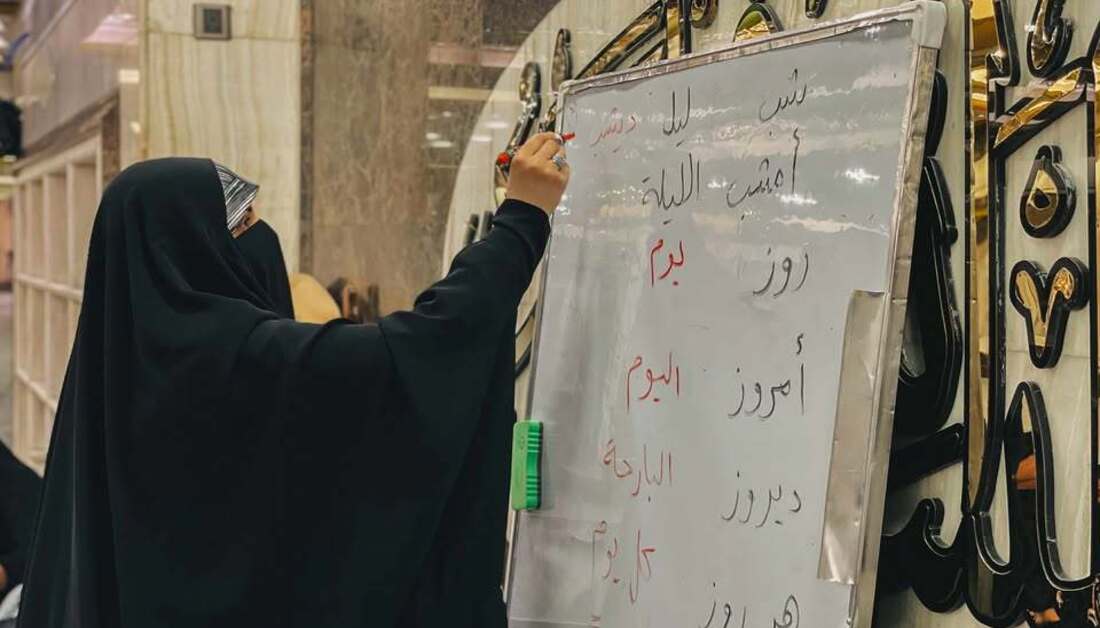 شب ليل ديشب
أمشب الليلة
روز يوم
أمروز اليوم
ديروز البارحة
هر روز كل يوم